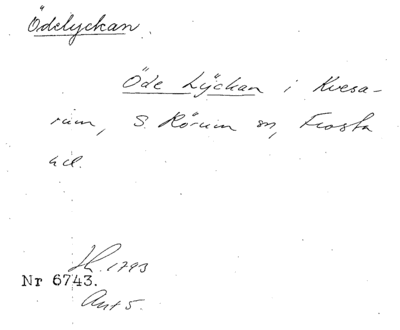 Ödelyckan.
Öde Lÿckan i Kvesa-
rum, S. Rörum sn, Frosta
hd.
H. 1793
Nr 6743.
Ant 5.